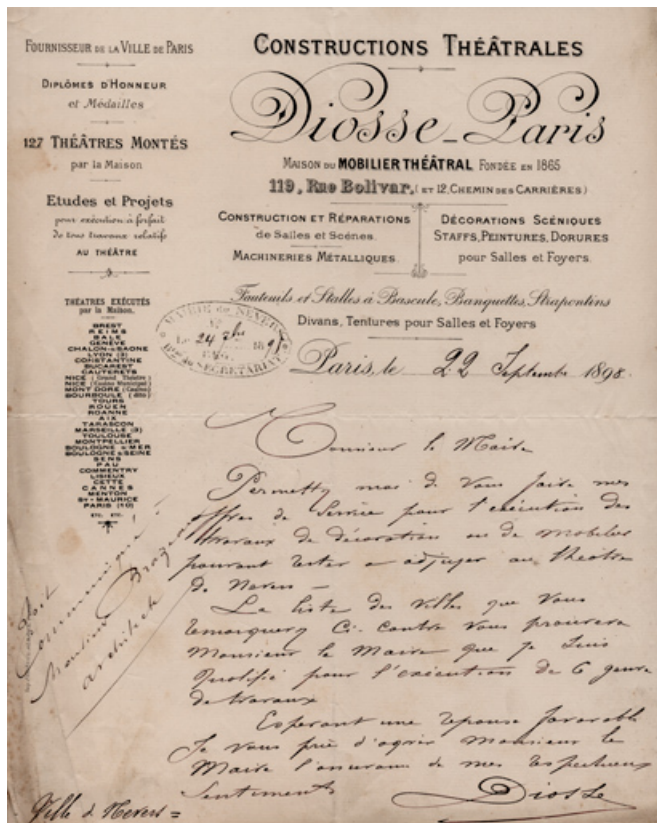 FOURNISSEUR DE LA VILLE DE PARIS
DIPLÔMES D'HONNEUR
et Médailles
127 THÉÂTRES MONTÉS
par la Maison
Etudes et Projets
pour exécution à forfait
de tous travaux relatifs
AU THÉÂTRE
THÉATRES EXÉCUTÉS
par la Maison.
BREST
REIMS
BALE
GENÈVE
CHALON-s-SAONE
LYON (3)
CONSTANTINE
BUCAREST
CAUTERETS
NICE (Grand Théâtre)
NICE (Casino Municipal)
MONT DORE (Casino)
BOURBOULE (dito)
TOURS
ROUEN
ROANNE
AIX
TARASCON
MARSEILLE (3)
TOULOUSE
MONTPELLIER
BOULOGNE s/MER
BOULOGNE s/SEINE
SENS
PAU
COMMENTRY
LISIEUX
CETTE
CANNES
MENTON
ST-MAURICE
PARIS (10)
ETC. ETC.
CONSTRUCTIONS THÉÂTRALES
Diosse_Paris
MAISON DU MOBILIER THÉÂTRAL FONDÉE EN 1865
119, Rue Bolivar, (ET 12, CHEMIN DES CARRIÈRES)
CONSTRUCTION ET RÉPARATIONS
de Salles et Scénes.
MACHINERIES MÉTALLIQUES.
DÉCORATIONS SCÉNIQUES
STAFFS, PEINTURES, DORURES
pour Salles et Foyers.
Fauteuils et Stalles à Bascule, Banquettes, Strapontins
Divans, Tentures pour Salles et Foyers
MAIRIE de NEVERS
Le 24 7bre 189
SECRÉTARIAT
Paris, le 22 Septembre 1898.
Monsieur le Maire
Permettez moi de vous faire mes
offres de service pour l'exécution des
travaux de décoration ou de mobilier
pouvant rester a adjuger au théâtre
de Nevers –
La liste des villes que vous
remarquerez Ci-contre vous prouvera
Monsieur le Maire que je suis
qualifié pour l'exécution de ce genre
de travaux
Esperant une réponse favorable
Je vous prie d'agréer Monsieur le
Maire l'assurance de mes respectueux
sentiments
Diosse
Communiqué à
Monsieur
architecte
Ville de Nevers =